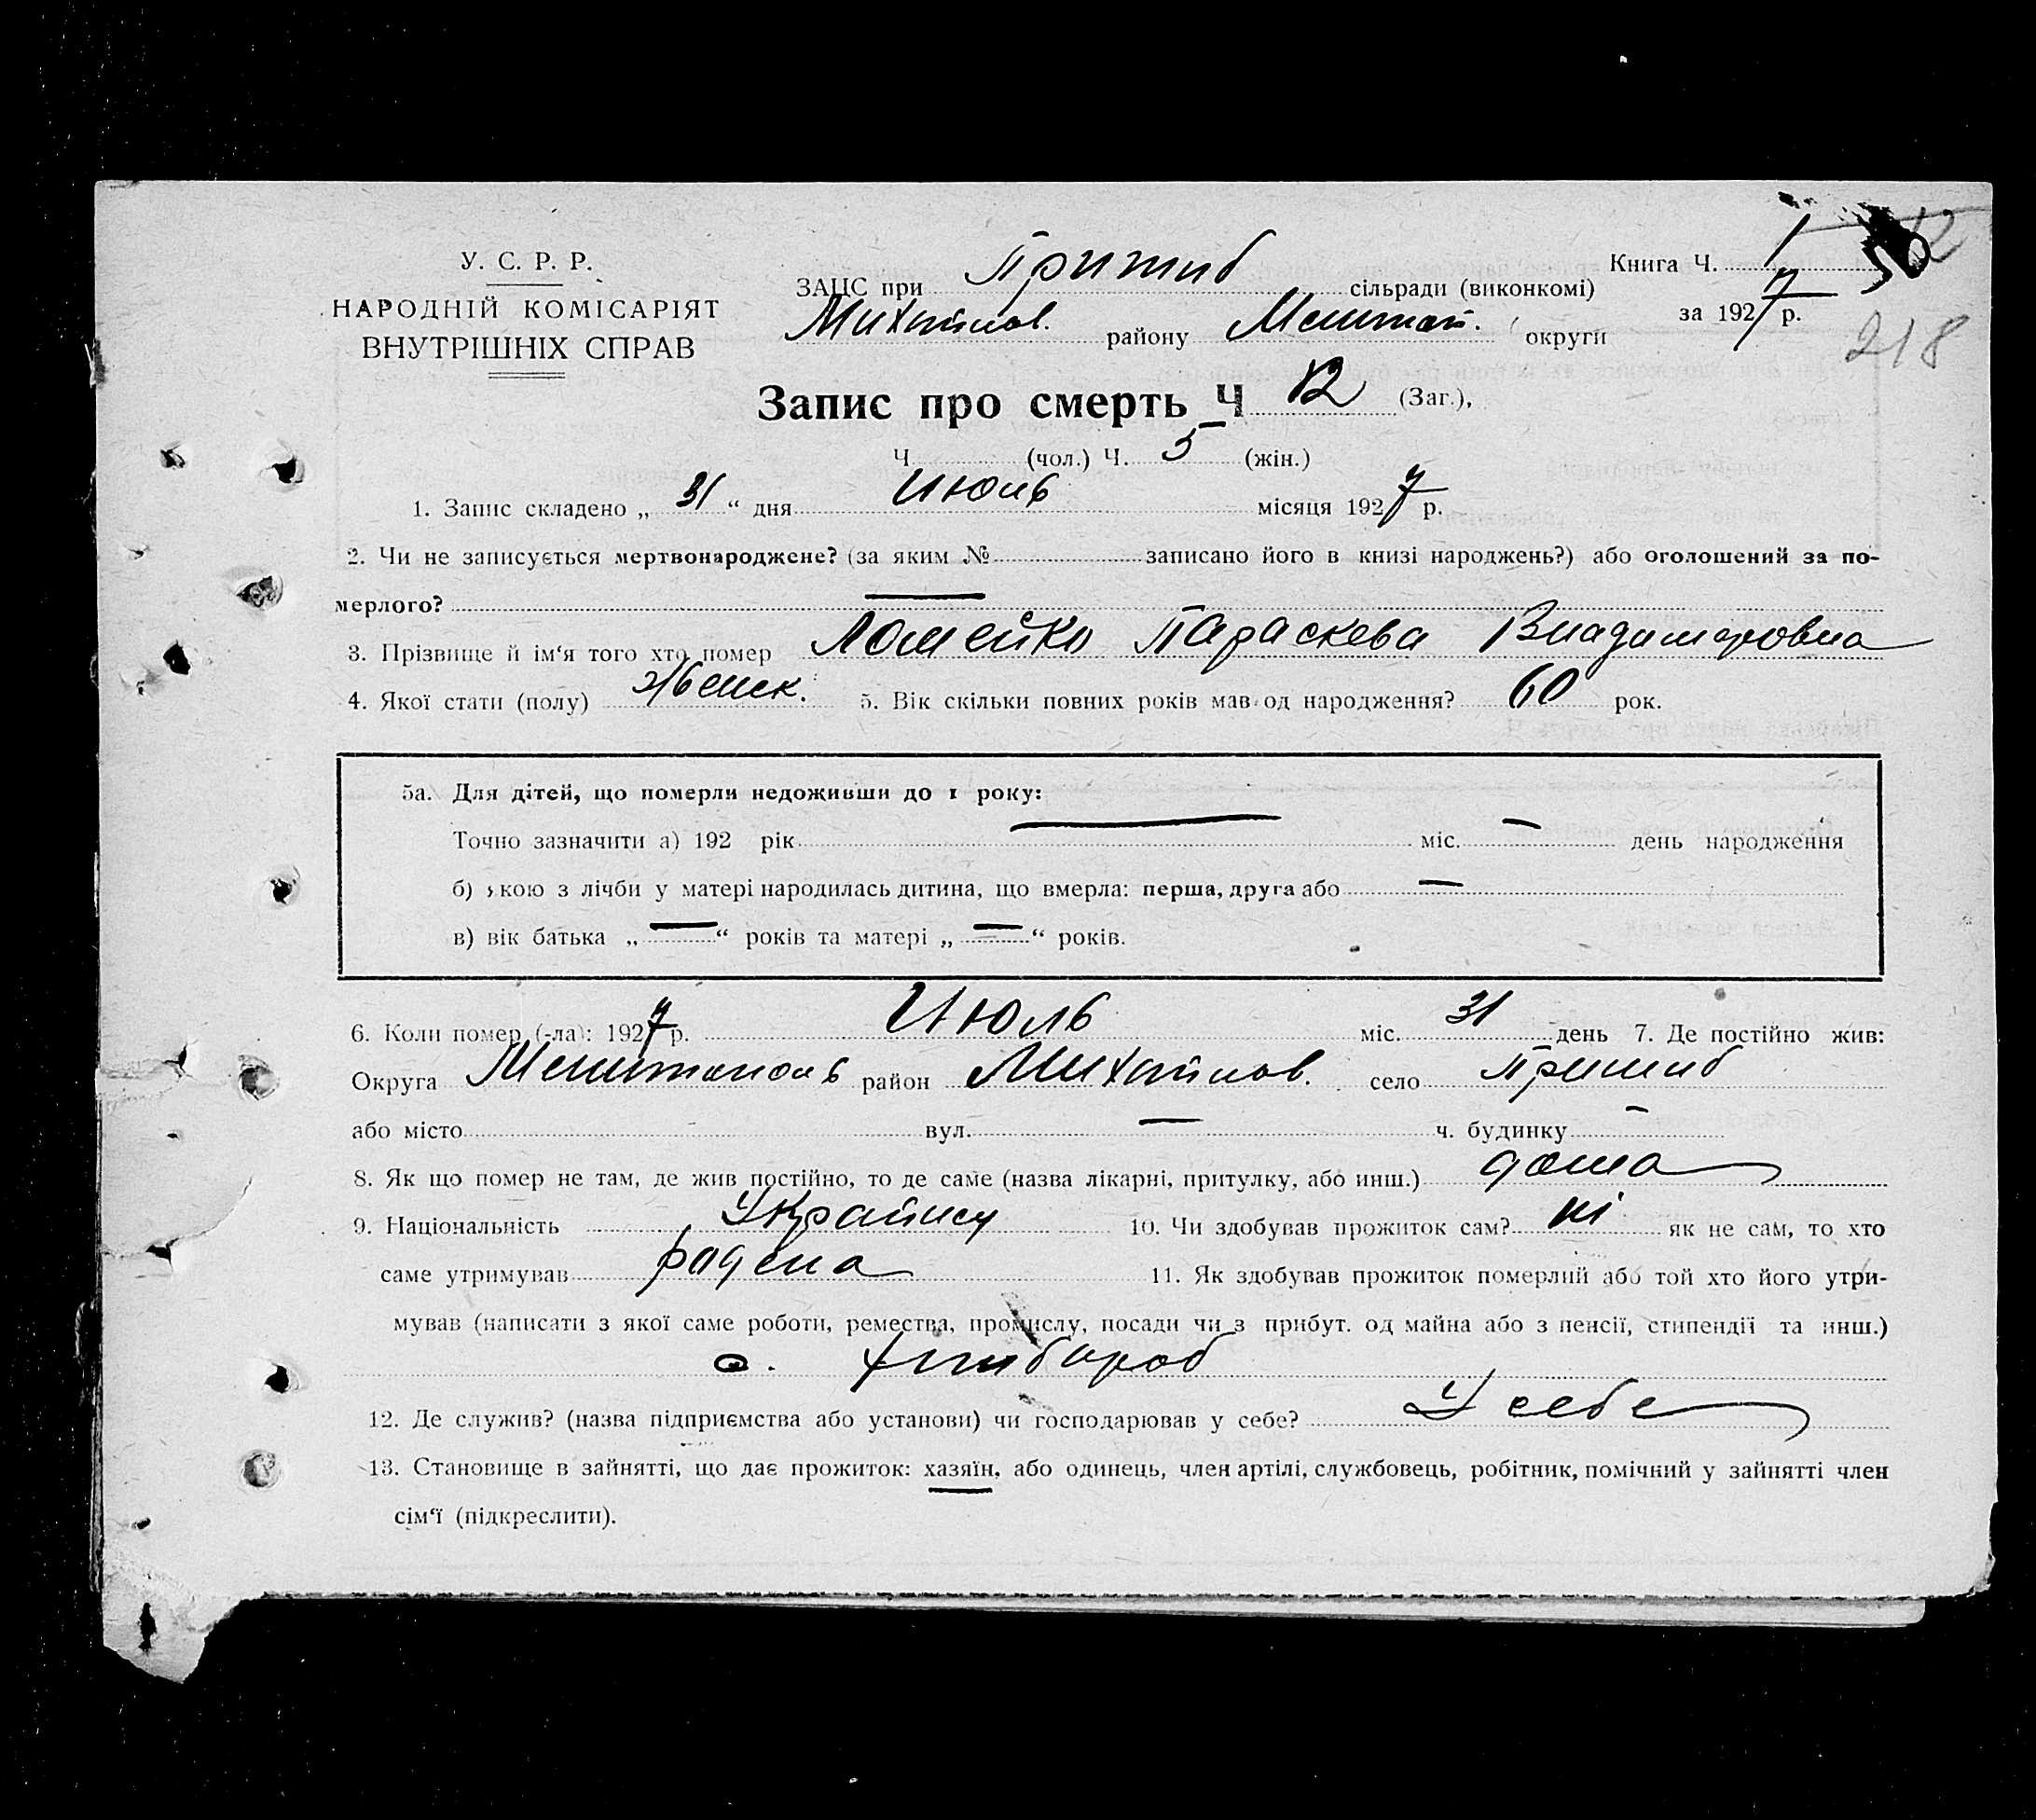 У. С. Р. Р.
НАРОДНІЙ КОМІСАРІЯТ
ВНУТРІШНІХ СПРАВ
ЗАЦС при Пришиб сільради (виконкомі)
Михайлов. району Мелитоп. округи
Книга Ч. 1
за 1927 р.
218
Запис про смерть Ч 12 (Заг.),
Ч. (чол.) Ч. 5 (жін.)
1. Запис складено „ 31 “ дня Июль місяця 1927 р.
2. Чи не записується мертвонароджене? (за яким № записано його в книзі народжень?) або оголошений за по-
мерлого? —
3. Прізвище й ім‘я того хто помер Ломейко Параскева Владимировна
4. Якої стати (полу) Женск. 5. Вік скільки повних років мав од народження? 60 рок.
5а. Для дітей, що померли недоживши до 1 року:
Точно зазначити а) 192 рік — міс. — день народження
б) якою з лічби у матері народилась дитина, що вмерла: перша, друга або —
в) вік батька „ — “ років та матері „ — “ років.
6. Коли помер (-ла): 1927 р. Июль міс. 31 день 7. Де постійно жив:
Округа Мелитополь район Михайлов. село Пришиб
або місто вул. — ч. будинку —
8. Як що помер не там, де жив постійно, то де саме (назва лікарні, притулку, або инш.) дома
9. Національність 10. Чи здобував прожиток сам? ні як не сам, то хто
саме утримував родена 11. Як здобував прожиток померлий або той хто його утри-
мував (написати з якої саме роботи, ремества, промислу, посади чи з прибут. од майна або з пенсії, стипендії та инш.)
хлибороб
12. Де служив? (назва підприємства або установи) чи господарював у себе? У себе
13. Становище в зайнятті, що дає прожиток: хазяїн, або одинець, член артілі, службовець, робітник, помічний у зайнятті член
сім‘ї (підкреслити).